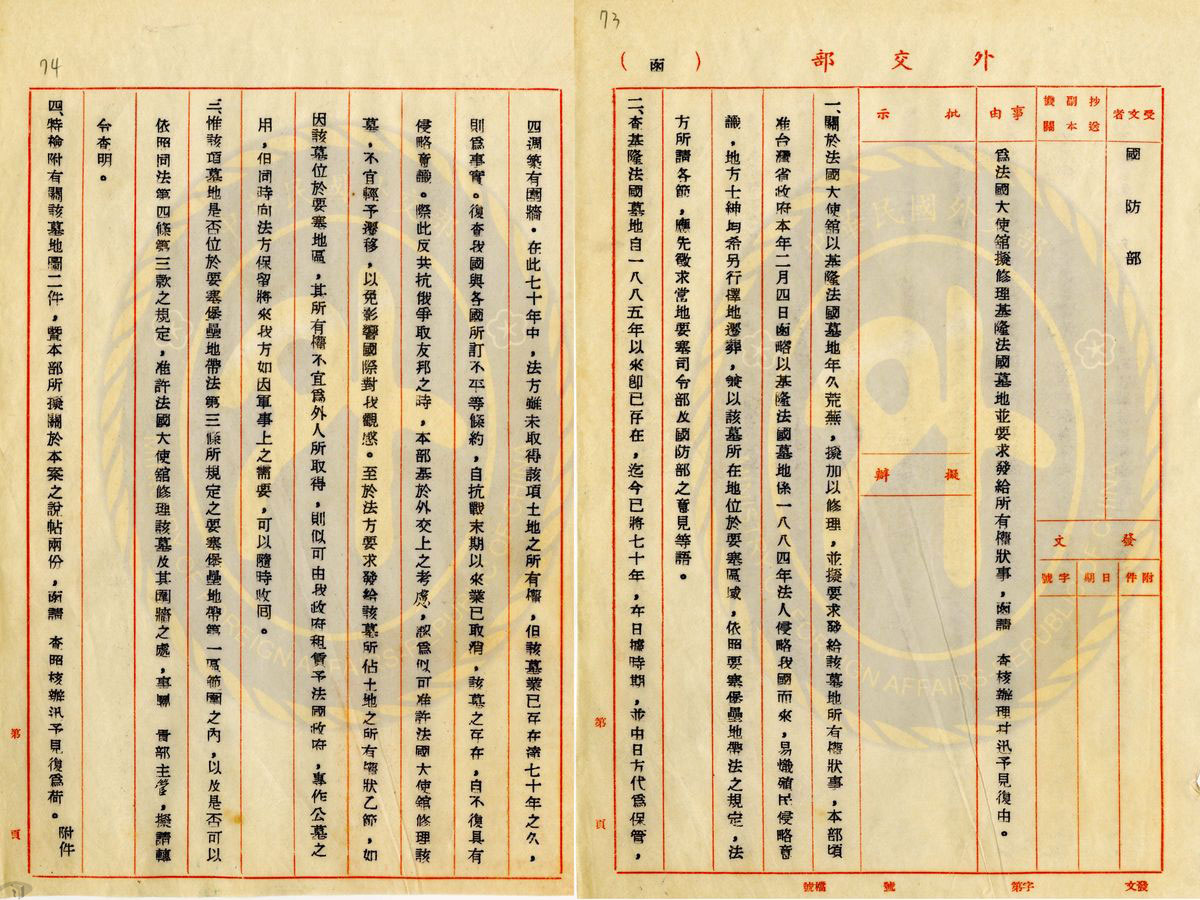 73
外交部
（函）
受文者
國防部
抄送副本機關
發文
附件
日期
字號
事由
為法國大使館擬修理基隆法國墓地並要求發給所有權狀事，函請　查核辦理並汛予見復由。
批示
擬辦
一、關於法國大使館以基隆法國墓地年久荒蕪，擬加以修理，並擬要求發給該墓地所有權狀事，本部頃
准台灣省政府本年二月四日函略以基隆法國墓地係一八八四年法人侵略我國而來，易熾殖民侵略意
識，地方士紳均希另行擇地遷葬，並以該墓所在地位於要塞區域，依照要塞堡壘地帶法之規定，法
方所請各節，應先徵求當地要塞司令部及國防部之意見等語。
二、查基隆法國墓地自一八八五年以來即已存在，迄今已將七十年，在日據時期，並由日方代為保管，
發文　字第　號
檔號
第　頁
74
四週築有圍牆。在此七十年中，法方雖未取得該項土地之所有權，但該墓業已存在達七十年之久，
則為事實。復查我國與各國所訂不平等條約，自抗戰末期以來業已取消，該墓之存在，自不復具有
侵略意識。際此反共抗俄爭取友邦之時，本部基於外交上之考慮，認為似可准許法國大使館修理該
墓，不宜輕予遷移，以免影響國際對我觀感。至於法方要求發給該墓所佔土地之所有權狀乙節，如
因該墓位於要塞地區，其所有權不宜為外人所取得，則似可由我政府租賃予法國政府，專作公墓之
用，但同時向法方保留將來我方如因軍事上之需要，可以隨時收回。
三、惟該項墓地是否位於要塞堡壘地帶法第三條所規定之要塞堡壘地帶第一區範圍之內，以及是否可以
依照同法第四條第三款之規定，准許法國大使館修理該墓及其圍牆之處，事屬　貴部主管，擬請轉
令查明。
四、特檢附有關該墓地圖二件，暨本部所擬關於本案之說帖兩份，函請　查照核辦汛予見復為荷。
附件
第　頁